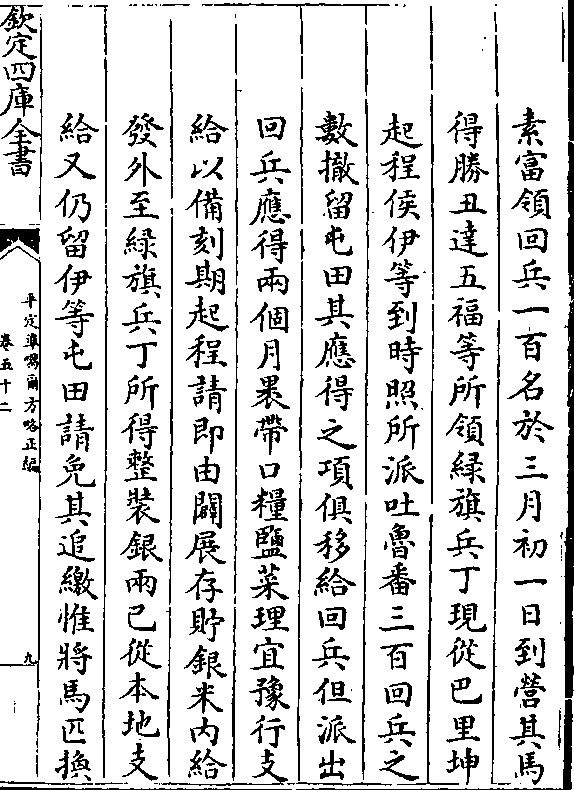 素富領回兵一百名於三月初一日到營其馬
得勝丑達五福等所領緑旗兵丁現從巴里坤
起程俟伊等到時照所派吐魯番三百回兵之
數撤留屯田其應得之項俱移給回兵但派出
回兵應得兩個月褁帶口糧鹽菜理宜豫行支
給以備刻期起程請即由闢展存貯銀米内給
發外至緑旗兵丁所得整裝銀兩已從本地支
給又仍留伊等屯田請免其追繳惟將馬匹換
欽定四庫全書
平定凖噶爾方略正編
卷五十二
九